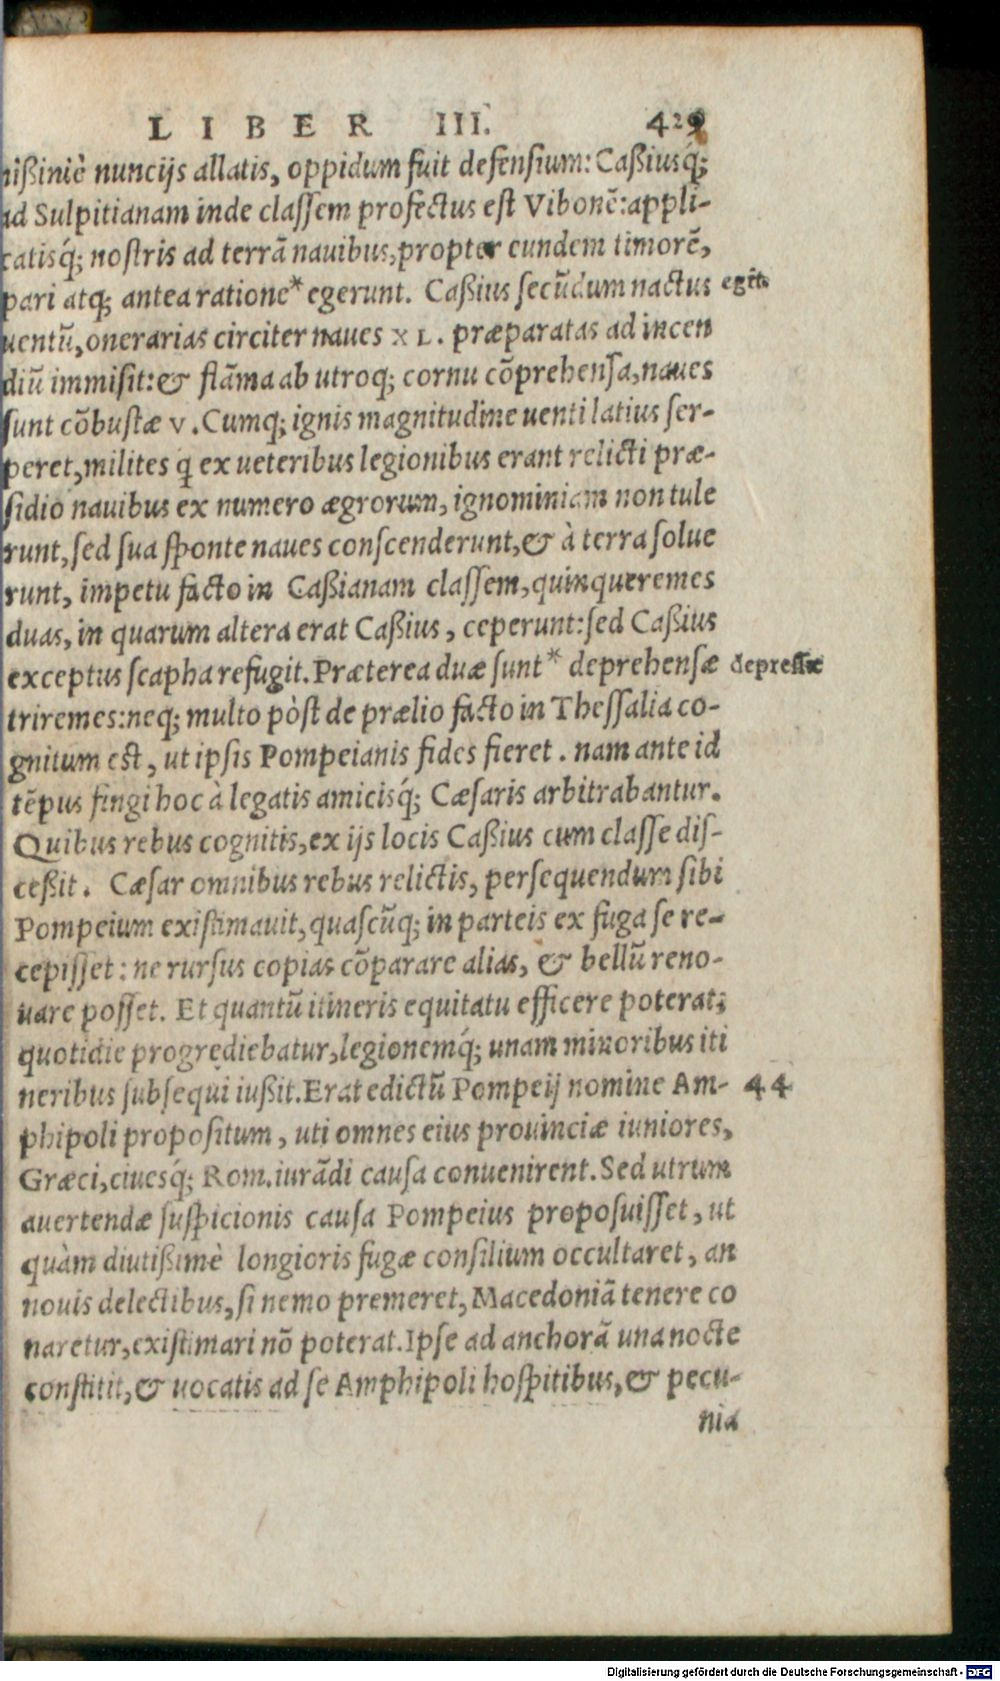 LIBER III. 429
nißimè nuncijs allatis, oppidum fuit defensum: Caßiusq́;
ad Sulpitianam inde classem profectus est Vibonẽ: appli-
catisq́; nostris ad terrã nauibus, propter eundem timorẽ,
pari atq; antea ratione* egerunt. Caßius secũdum nactus egit
uentũ, onerarias circiter naues XL. præparatas ad incen
diũ immisit: & flãma ab utroq; cornu cõprehensa, naues
sunt cõbustæ v. Cumq; ignis magnitudine uenti latius ser-
peret, milites q̃ ex ueteribus legionibus erant relicti præ-
sidio nauibus ex numero ægrorum, ignominiam non tule
runt, sed sua sponte naues conscenderunt, & à terra solue
runt, impetu facto in Caßianam classem, quinqueremes
duas, in quarum altera erat Caßius, ceperunt: sed Caßius
exceptus scapha refugit. Præterea duæ sunt* deprehensæ depressæ
triremes: neq; multo pòst de prælio facto in Thessalia co-
gnitum est, ut ipsis Pompeianis fides fieret. nam ante id
tẽpus fingi hoc à legatis amicisq́; Cæsaris arbitrabantur.
Quibus rebus cognitis, ex ijs locis Caßius cum classe dis-
ceßit. Cæsar omnibus rebus relictis, persequendum sibi
Pompeium existimauit, quascũq; in parteis ex fuga se re-
cepisset: ne rursus copias cõparare alias, & bellũ reno-
uare posset. Et quantũ itineris equitatu efficere poterat;
quotidie progrediebatur, legionemq́; unam minoribus iti
neribus subsequi iußit. Erat edictũ Pompeij nomine Am- 44
phipoli propositum, uti omnes eius prouinciæ iuniores,
Græci, ciuesq́; Rom. iurãdi causa conuenirent. Sed utrum
auertendæ suspicionis causa Pompeius proposuisset, ut
quàm diutißimè longioris fugæ consilium occultaret, an
nouis delectibus, si nemo premeret, Macedoniã tenere co
naretur, existimari nõ poterat. Ipse ad anchorã una nocte
constitit, & uocatis ad se Amphipoli hospitibus, & pecu-
nia
Digitalisierung gefördert durch die Deutsche Forschungsgemeinschaft - DFG